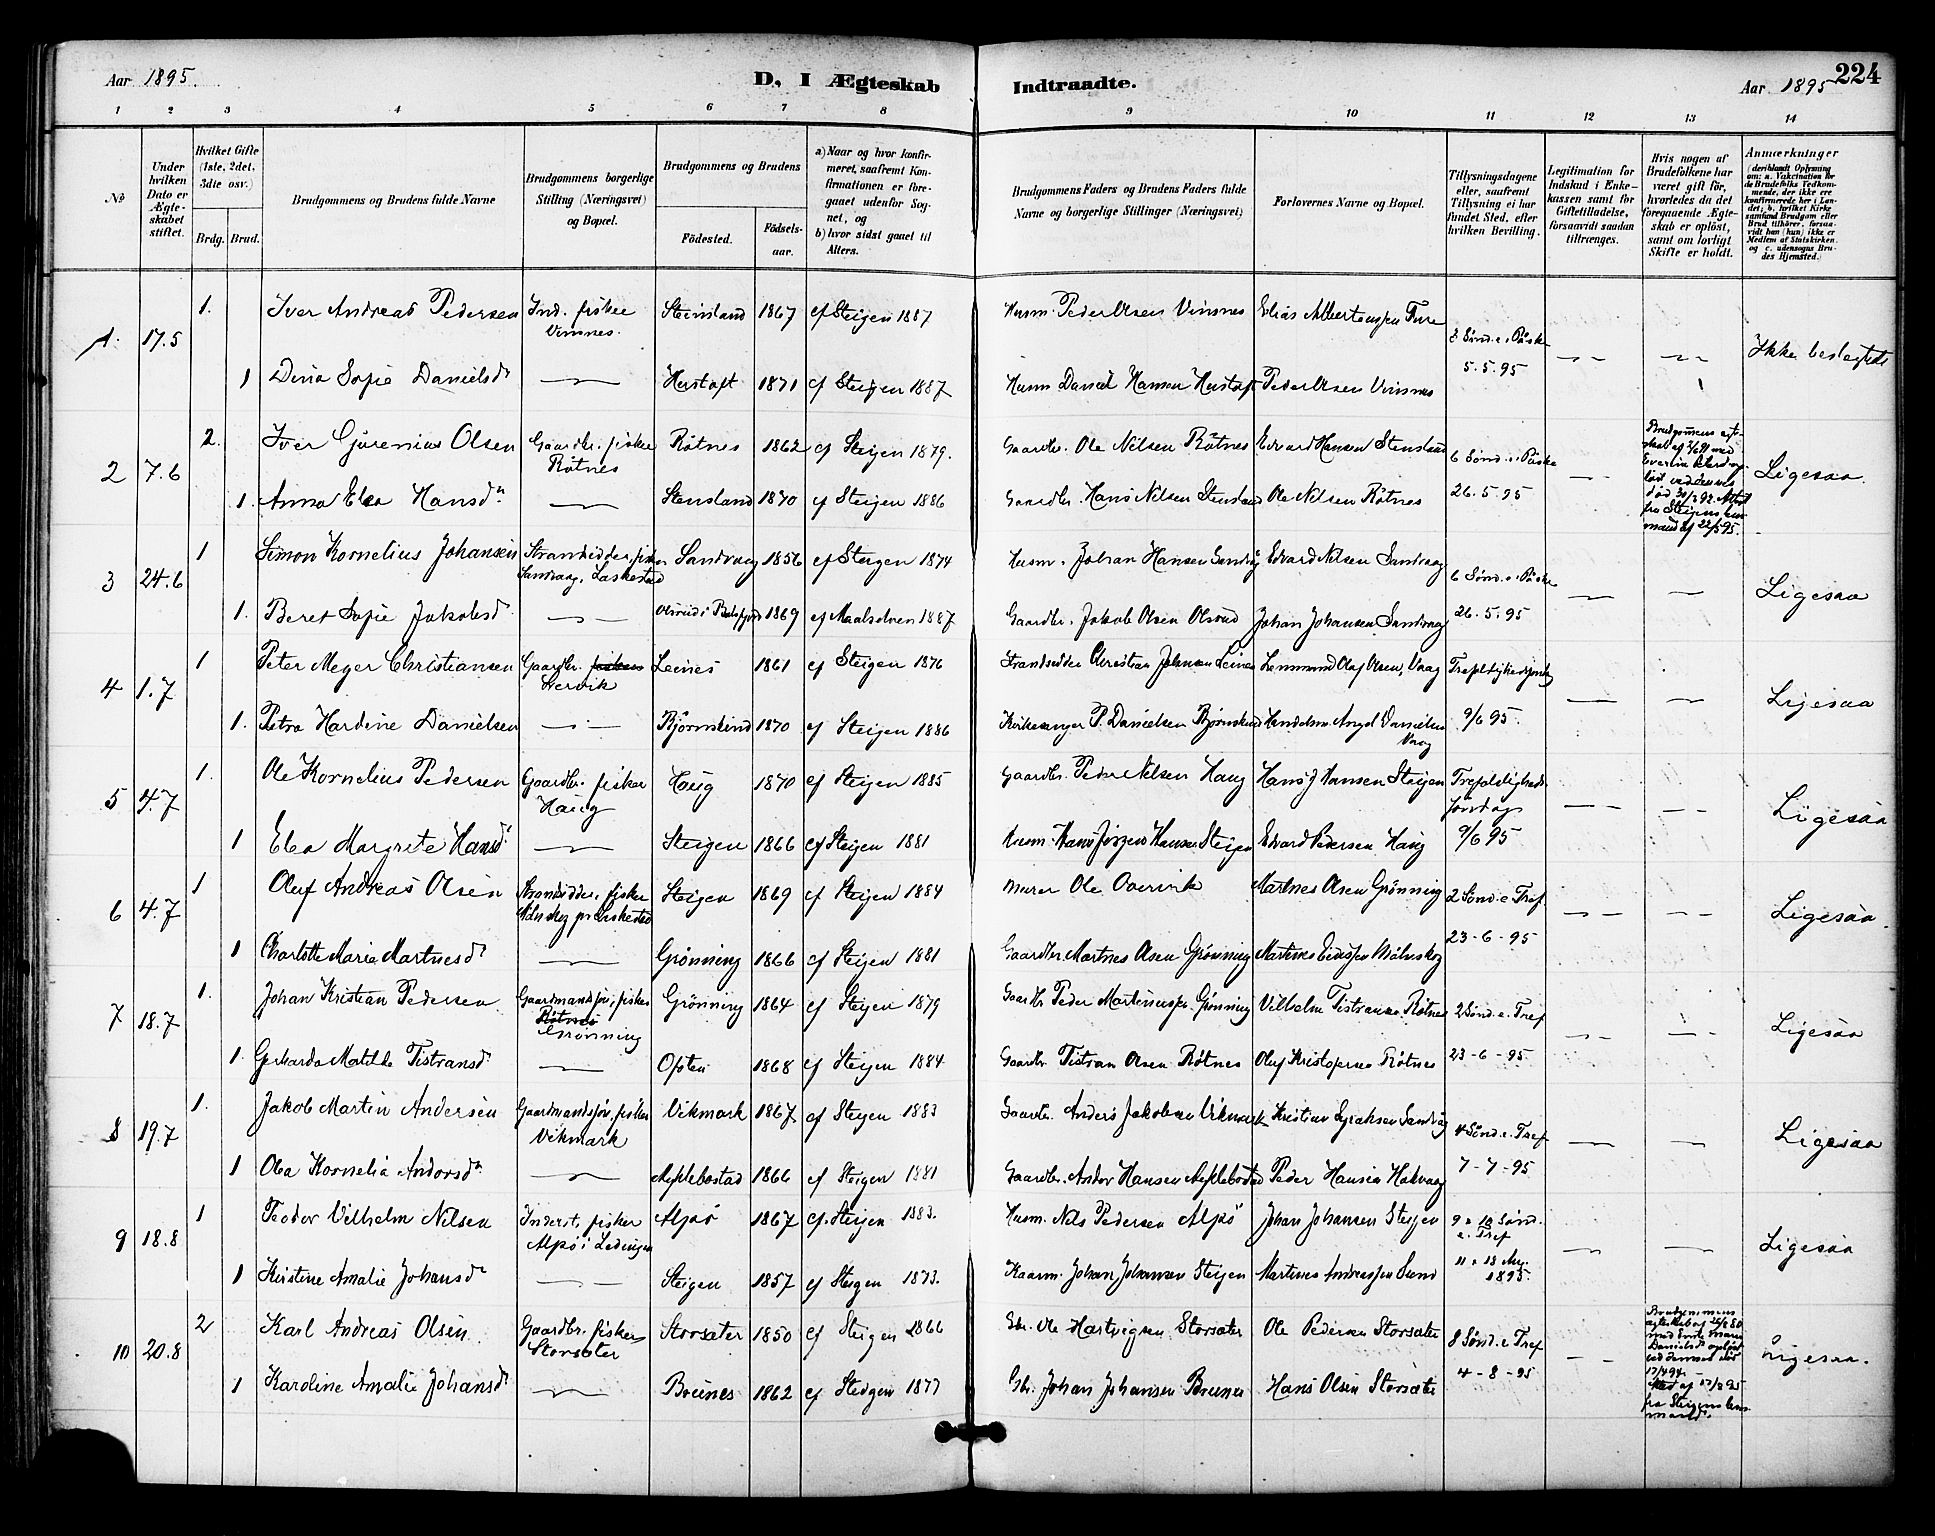 Aar 1895. D, I Ægteskab Indtraadte. Aar 1895 224
1 2 3 4 5 6 7 8 9 10 11 12 13 14
No
Under hvilken Dato er Ægteskabet stiftet.
Hvilket Gifte (1ste, 2det, 3die osv.)
Brdg. Brud.
Brudgommens og Brudens fulde Navne
Brudgommens borgerlige Stilling (Næringsvei) og Bopæl.
Brudgommens og Brudens
Födested.
Födsels-aar.
a) Naar og hvor konfirmeret, saafremt Konfirmationen er foregaaet udenfor Sognet, og
b) hvor sidst gaaet til Alters.
Brudgommens Faders og Brudens Faders fulde Navne og borgerlige Stillinger (Næringsvei)
Forlovernes Navne og Bopæl.
Tillysningsdagene eller, saafremt Tillysning ei har fundet Sted, efter hvilken Bevilling.
Legitimation for Indskud i Enkekassen samt for Giftetilladelse, forsaavidt saadan tiltrænges.
Hvis nogen af Brudefolkene har været gift för, hvorledes da det foregaaende Ægteskab er oplöst, samt om lovligt Skifte er holdt.
Anmærkninger
(deriblandt Oplysning om: a. Vakcination for de Brudefolks Vedkommende, der ikke ere konfirmerede her i Landet; b. hvilket Kirkesamfund Brudgom eller Brud tilhörer, forsaavidt han (hun) ikke er Medlem af Statskirken, og c. udensogns Brudes Hjemsted.)
1. 17.5 1. Iver Andreas Pedersen Ind. fisker Vinnes. Steinsland 1867 cf Steigen 1887 Husm. Peder Olsen Vinsnes Elias Albertensen Fure 3 Sönd. e. Påske
1 Dina Sofie Danielsd. Hustoft 1871 cf Steigen 1887 Husm Daniel Hansen Hustoft Peder Olsen Vinsnes 5.5.95 Ikke beslegtede
2 7.6 2. Iver Gjörenius Olsen Gaardbr. fisker Røtnes Røtnes 1862 cf Steigen 1879. Gaardbr. Ole Nilsen Røtnes Edvard Hansen Stensland 6 Sönd. e. Påske
1. Anna Elea Hansdn Stensland 1870 cf Steigen 1886 Gaardbr. Hans Nilsen Stensland Ole Nilsen Røtnes 26.5.95 Ligesaa.
3 24.6 1 Simon Kornelius Johansen Strandsidder, fisker Sandvaag, Laskestad Sandvaag 1856 cf Steigen 1874 Husm. Johan Hansen Sandvåg Edvard Nilsen Sandvaag 6 Sönd. e. Påske
1. Beret Sofie Jakobsd. Olsrud i Balsfjord 1869 cf Maalselven 1887 Gaardbr. Jakob Olsen Olsrud Johan Johansen Sandvaag 26.5.95 Ligesaa
4 1.7 1 Peter Meyer Christiansen Gaardbr. fisker Lervik Leines 1861 cf Steigen 1876 Strandsidder Christian Johnsen Leines Lensmand Olaf Olsen, Vaag Trefoldighedsönd
1. Petra Hardine Danielsen Bjørnskind 1870 cf Steigen 1886 Kirkesanger P. Danielsen Bjørnskind Handelsm. Angel Danielsen Vaag 9/6 95. Ligesaa
5 4.7 1. Ole Kornelius Pedersen Gaardbr. fisker Haug Haug 1870 cf Steigen 1885 Gaardbr. Peder Nilsen Haug Hans J Hansen Steigen Trefoldigheds Söndag
1 Elea Margrete Hansd. Steigen 1866 cf Steigen 1881 Husm. Hans Jörgen Hansen Steigen Edvard Pedersen Haug 9/6 95 Ligesaa
6 4.7 1 Oluf Andreas Olsen Strandsidder, fisker Steigen 1869 cf Steigen 1884 Murer Ole Overvik Martnes Olsen Grönning 2 Sönd. e Tref.
1 Charlotte Maria Martnesd. Grönning 1866 cf Steigen 1881 Gaardbr. Martnes Olsen Grønning 23-6-95 Ligesaa.
7 18.7 1. Johan Kristian Pedersen Gaardmandssön, fisker Røtnes Grönning Grönning 1864 cf Steigen 1879 Gaardbr Peder Martinussen Grönning Vilhelm Tistransen Røtnes 2 Sönd. e. Tref
1. Gerharda Matilde Tistransd. Opsten 1868 cf Steigen 1884 Gaardbr Tistran Olsen Røtnes Oluf Kristofersen Røtnes 23-6-95. Ligesaa
8 19.7 1. Jakob Martin Andersen Gaardmandssön, fisker Vikmark Vikmark 1867 cf Steigen 1883 Gaardbr. Anders Jakobsen Vikmark Kristian Syraksen Sandvåg 4 Sönd. e. Tref
1 Olea Kornelia Andorsdn Myklebostad 1866 cf Steigen 1881 Gaardbr. Andor Hansen Myklebostad Peder Hansen Hakvaag 7-7-95 Ligesaa
9 18.8 1 Teodor Vilhelm Nilsen Inderst, fisker Alpsö i Lødingen Alpsö 1867 cf. Steigen 1883. Husm. Nils Pedersen Alpsö Johan Johansen Steigen 9 & 10 Sönd. e. Tref
1 Kirstine Amalie Johansdr Steigen 1857 cf Steigen 1873. Kaarm. Johan Johansen Steigen Martines Andreassen Sund 11 & 18 Aug. 1895. Ligesaa
10 20.8 2 Karl Andreas Olsen Gaardbr. fisker Storsæter Storsæter 1850 cf Steigen 1866 Gbr. Ole Hartvigsen Storsæter Ole Pedersen Storsæter 8 Sönd. e Tref
1 Karoline Amalie Johansd. Brennes 1862 cf Steigen 1877 Gbr. Johan Johansen Brennes Hans Olsen Storsæter 4-8-95 Ligesaa.